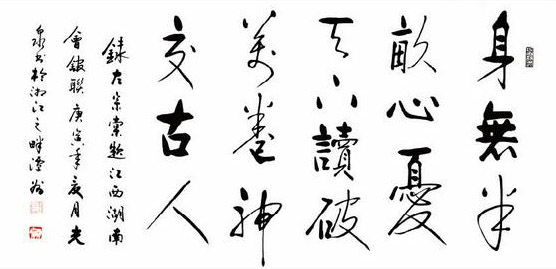 身無半
畝心憂
天下讀破
萬卷神
交古人
錄左宗棠題江西湖南
會館聯庚寅年夏月光
泉书於湘江之畔潭州